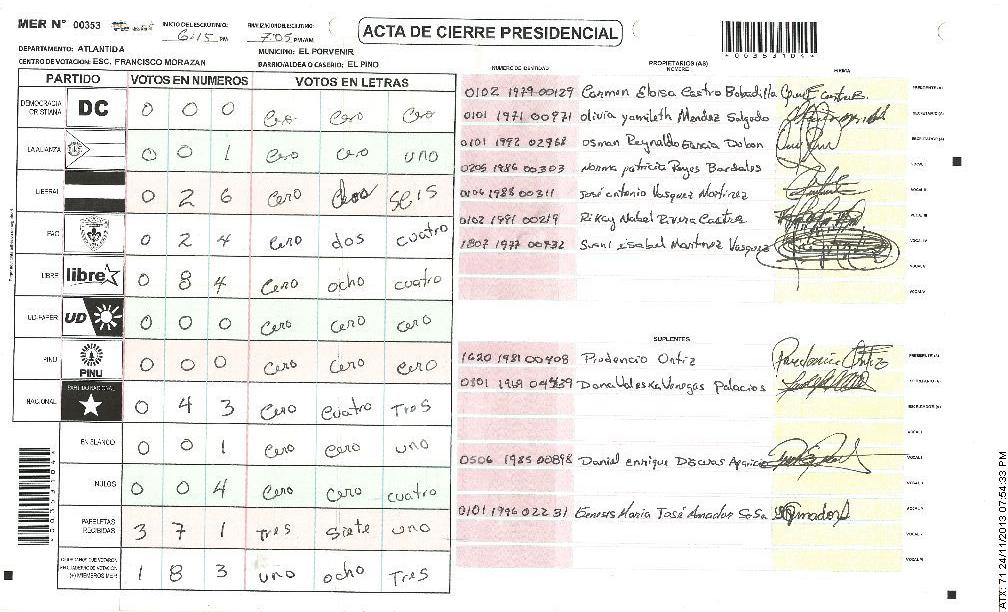 MER N° 00353
INICIO DEL ESCRUTINIO: 6:15 PM
FINALIZACION DEL ESCRUTINIO: 7:05 PM/AM
ACTA DE CIERRE PRESIDENCIAL
*00353104*
DEPARTAMENTO: ATLANTIDA
MUNICIPIO: EL PORVENIR
CENTRO DE VOTACION: ESC. FRANCISCO MORAZAN
BARRIO/ALDEA O CASERIO: EL PINO
PARTIDO VOTOS EN NUMEROS VOTOS EN LETRAS
DEMOCRACIA CRISTIANA DC 0 0 0 Cero Cero Cero
LA ALIANZA 0 0 1 Cero Cero uno
LIBERAL 0 2 6 Cero dos seis
PAC 0 2 4 Cero dos cuatro
LIBRE libre 0 8 4 Cero ocho cuatro
UD-FAPER UD 0 0 0 Cero Cero Cero
PINU PINU 0 0 0 Cero Cero Cero
NACIONAL PARTIDO NACIONAL 0 4 3 Cero Cuatro Tres
EN BLANCO 0 0 1 Cero Cero uno
NULOS 0 0 4 Cero Cero cuatro
PAPELETAS RECIBIDAS 3 7 1 Tres Siete uno
1 8 3 uno ocho Tres
NUMERO DE IDENTIDAD PROPIETARIOS (AS) NOMBRE FIRMA
0102 1979 00129 Carmen Eloisa Castro Bobadilla
0101 1971 00971 olivia yamileth Mendez Salgado
0101 1992 02968 Osman Reynaldo Garcia Dubon
0205 1986 00303 Norma patricia Reyes Bardales
0104 1988 00311 José antonio Vasquez Martinez
0102 1991 00219 Rikay Nabel Rivera Castro
1807 1977 00932 Suani isabel Martinez Vasquez
SUPLENTES
1620 1981 00408 Prudencio Ortiz
Dana Valeska Venegas Palacios
0506 1985 00898 Daniel enrique Discuas Aparicio
0101 1996 02231 Genesis Maria José Amador Sosa
*00353104*
ATX: 71 24/11/2013 07:54:33 PM